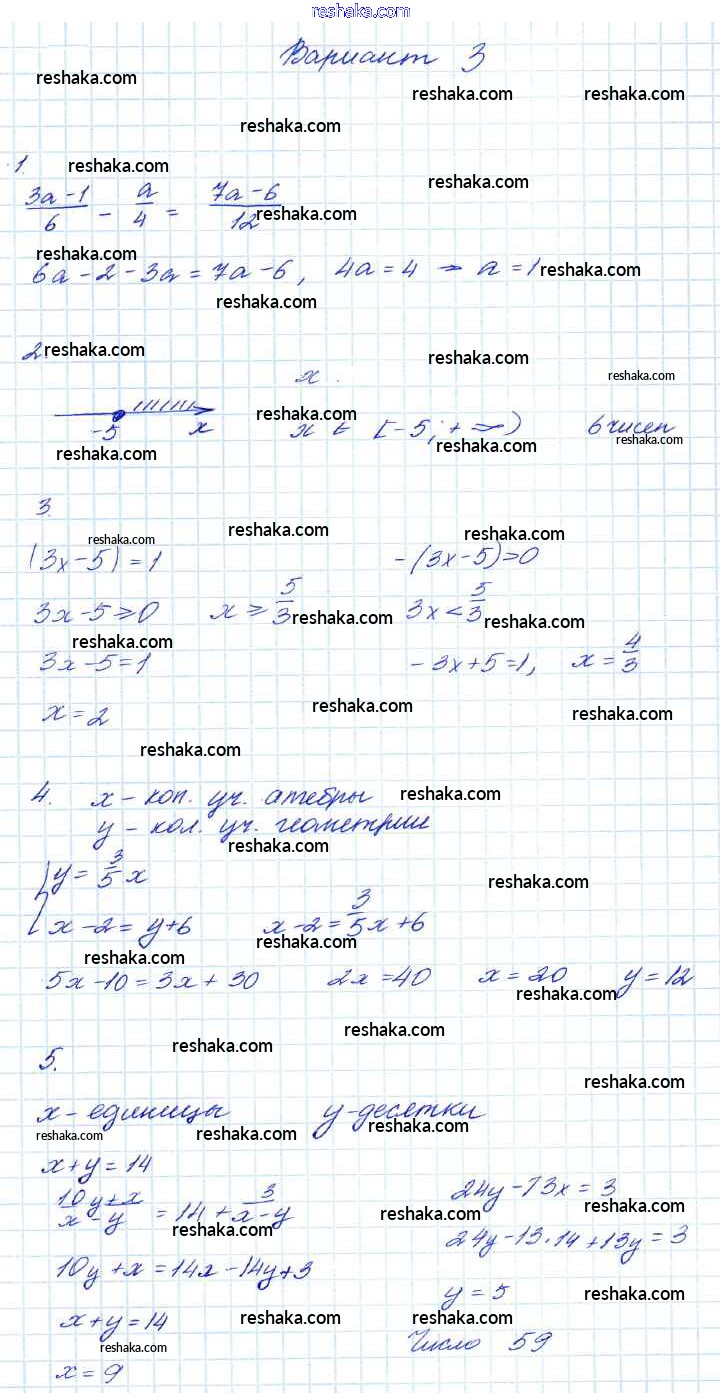 reshaka.com
Вариант 3
reshaka.com reshaka.com reshaka.com
reshaka.com
1. reshaka.com reshaka.com
(3a-1)/6 - a/4 = (7a-6)/12 reshaka.com
reshaka.com
6a-2-3a=7a-6, 4a=4 → a=1 reshaka.com
reshaka.com
2 reshaka.com reshaka.com
x. reshaka.com
reshaka.com
-5 x x ∈ [-5; +∞) 6 чисел
reshaka.com reshaka.com reshaka.com
3.
reshaka.com reshaka.com reshaka.com
|3x-5|=1 -(3x-5)>0
3x-5≥0 x≥5/3 reshaka.com 3x<5/3 reshaka.com
reshaka.com
3x-5=1 -3x+5=1, x=4/3
x=2 reshaka.com reshaka.com
reshaka.com
4. x - кол. уч. алгебры reshaka.com
y - кол. уч. геометрии
reshaka.com
y=3/5x reshaka.com
x-2=y+6 x-2=3/5x+6
reshaka.com reshaka.com
5x-10=3x+30 2x=40 x=20 y=12
reshaka.com
reshaka.com reshaka.com
5.
reshaka.com
x-единицы y-десятки
reshaka.com reshaka.com reshaka.com
x+y=14
(10y+x)/(x-y) = 14 + 3/(x-y) 24y-13x=3
reshaka.com reshaka.com reshaka.com
24y-13·14+13y=3
reshaka.com
10y+x=14x-14y+3
y=5 reshaka.com
x+y=14 reshaka.com reshaka.com
Число 59
reshaka.com
x=9